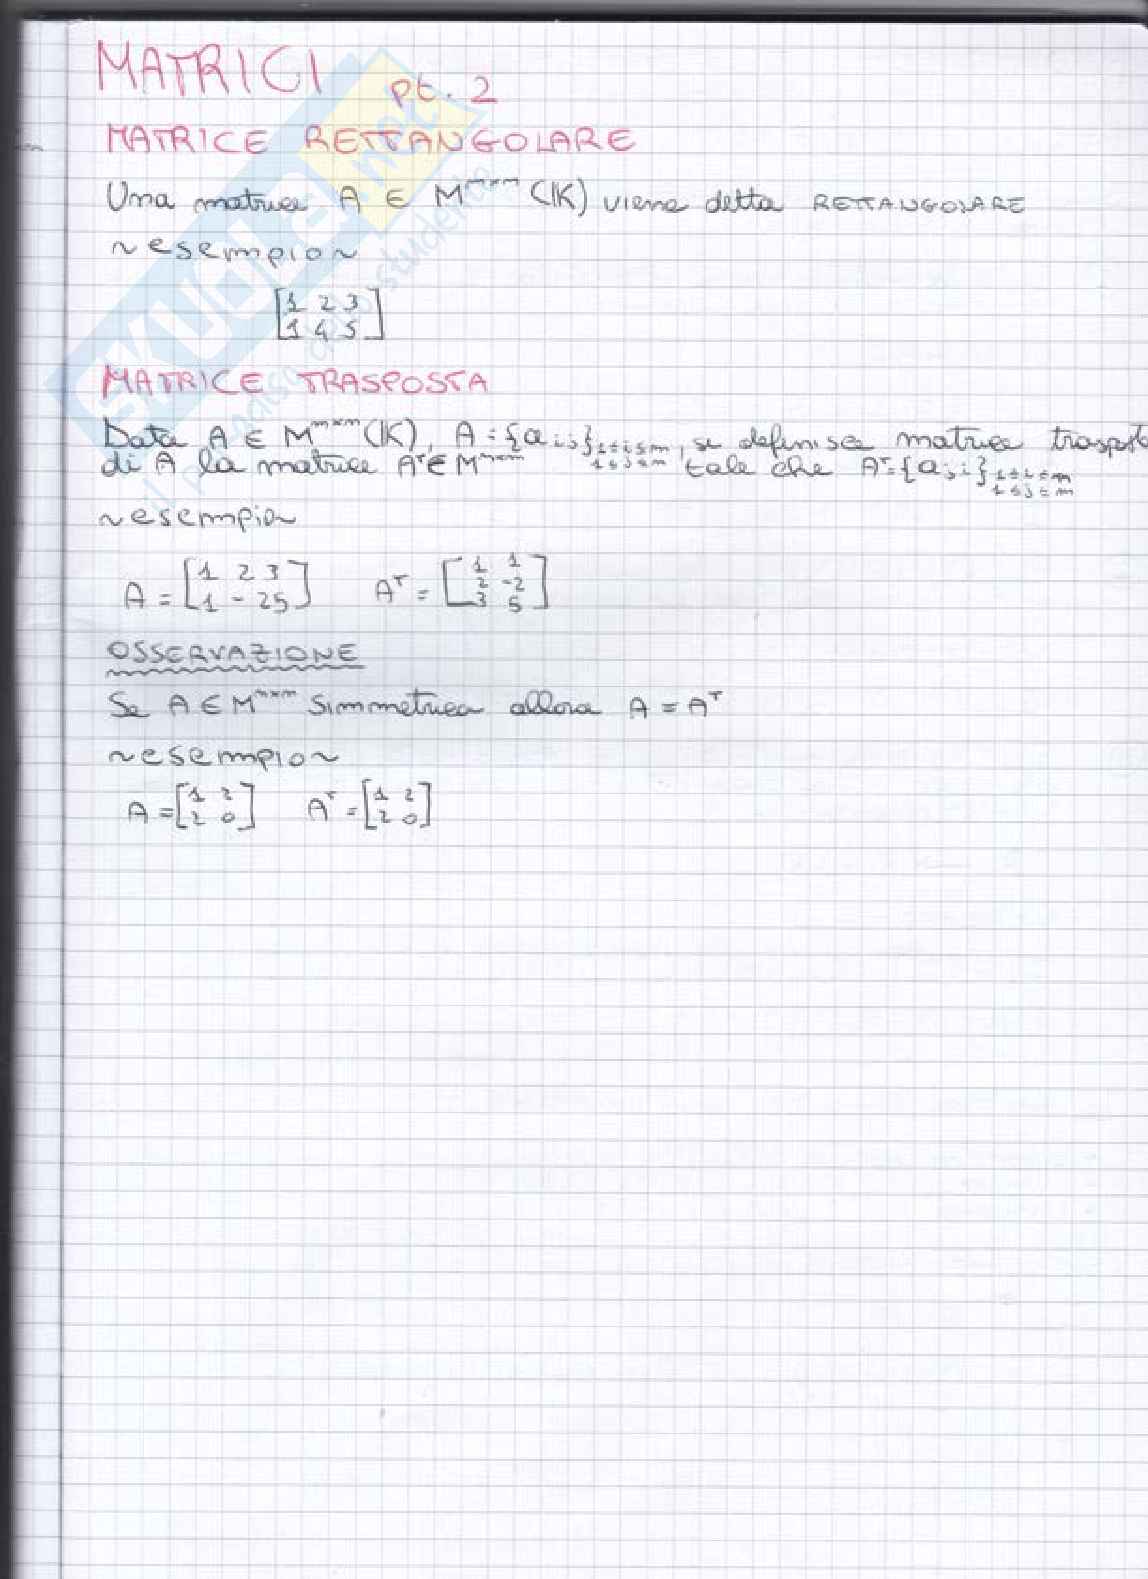 MATRICI pt. 2
MATRICE RETTANGOLARE
Una matrice A ∈ M^m×n (K) viene detta RETTANGOLARE
~esempio~
[1 2 3
1 4 5]
MATRICE TRASPOSTA
Data A ∈ M^m×n (K), A = {aij} 1≤i≤m, si definisce matrice trasposta
1≤j≤n
di A la matrice A^T ∈ M^n×m tale che A^T = {aji} 1≤i≤m
1≤j≤n
~esempio~
A = [1 2 3 A^T = [1 1
1 -2 5] 2 -2
3 5]
OSSERVAZIONE
Se A ∈ M^n×n simmetrica allora A = A^T
~esempio~
A = [1 2 A^T = [1 2
2 0] 2 0]
SKUOLA.net
il paradiso dello studente